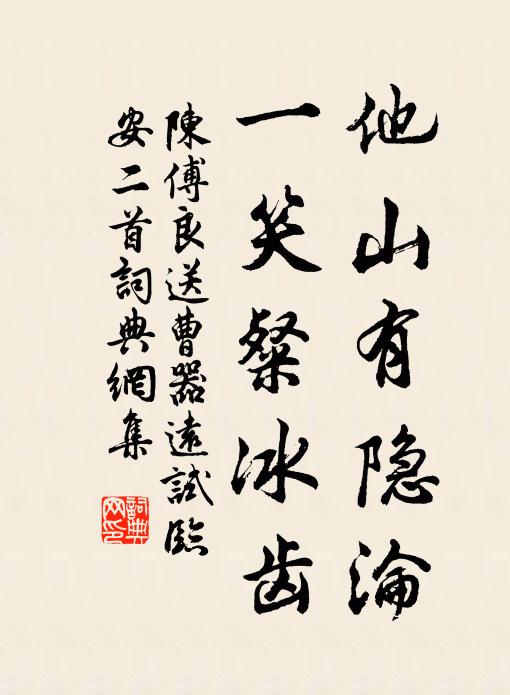 他山有隐淪
一笑粲冰齿
陳傅良送曹器遠試臨
安二首詞典網集
詞典網印